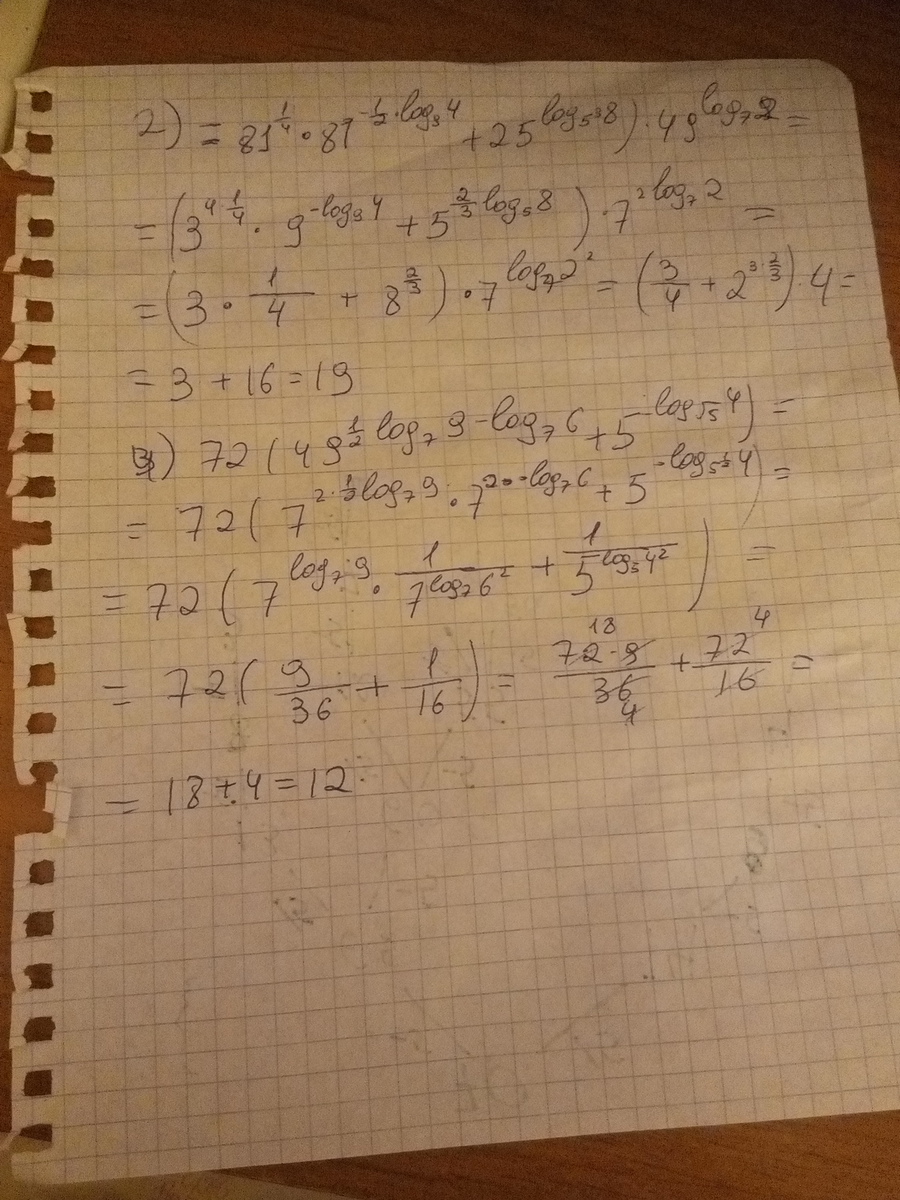 2) = 81^{1/4} · 81^{-1/2 · log_9 4} + 25^{log_{5^3} 8}) · 49^{log_7 2} =
= (3^{4 · 1/4} · 9^{-log_9 4} + 5^{2/3 log_5 8}) · 7^{2 log_7 2} =
= (3 · 1/4 + 8^{2/3}) · 7^{log_7 2^2} = (3/4 + 2^{3 · 2/3}) · 4 =
= 3 + 16 = 19
3) 72 (49^{1/2 log_7 9 - log_7 6} + 5^{-log_{√5} 4}) =
= 72 (7^{2 · 1/2 log_7 9} · 7^{2 · -log_7 6} + 5^{-log_{5^{1/2}} 4}) =
= 72 (7^{log_7 9} · 1/7^{log_7 6^2} + 1/5^{log_5 4^2}) =
= 72 (9/36 + 1/16) = 72 · 9/36 + 72/16 = 18 4 4
= 18 + 4 = 12